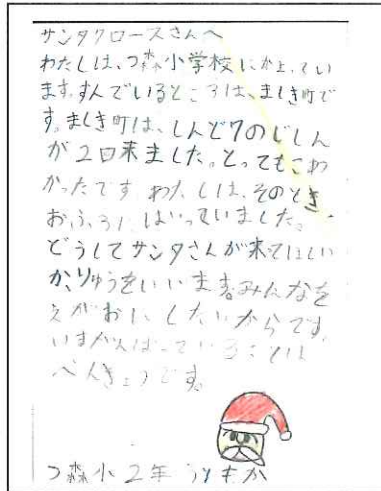 サンタクロースさんへ
わたしは、つ森小学校にかよってい
ます。すんでいるところは、ましき町で
す。ましき町は、しんど7のじしん
が2回来ました。とってもこわ
かったです わたしは、そのとき
おふろにはいっていました。
どうしてサンタさんが来てほしい
か、りゆうをいいます。みんなを
えがおにしたいからです。
いまがんばっていることは
べんきょうです。
つ森小2年